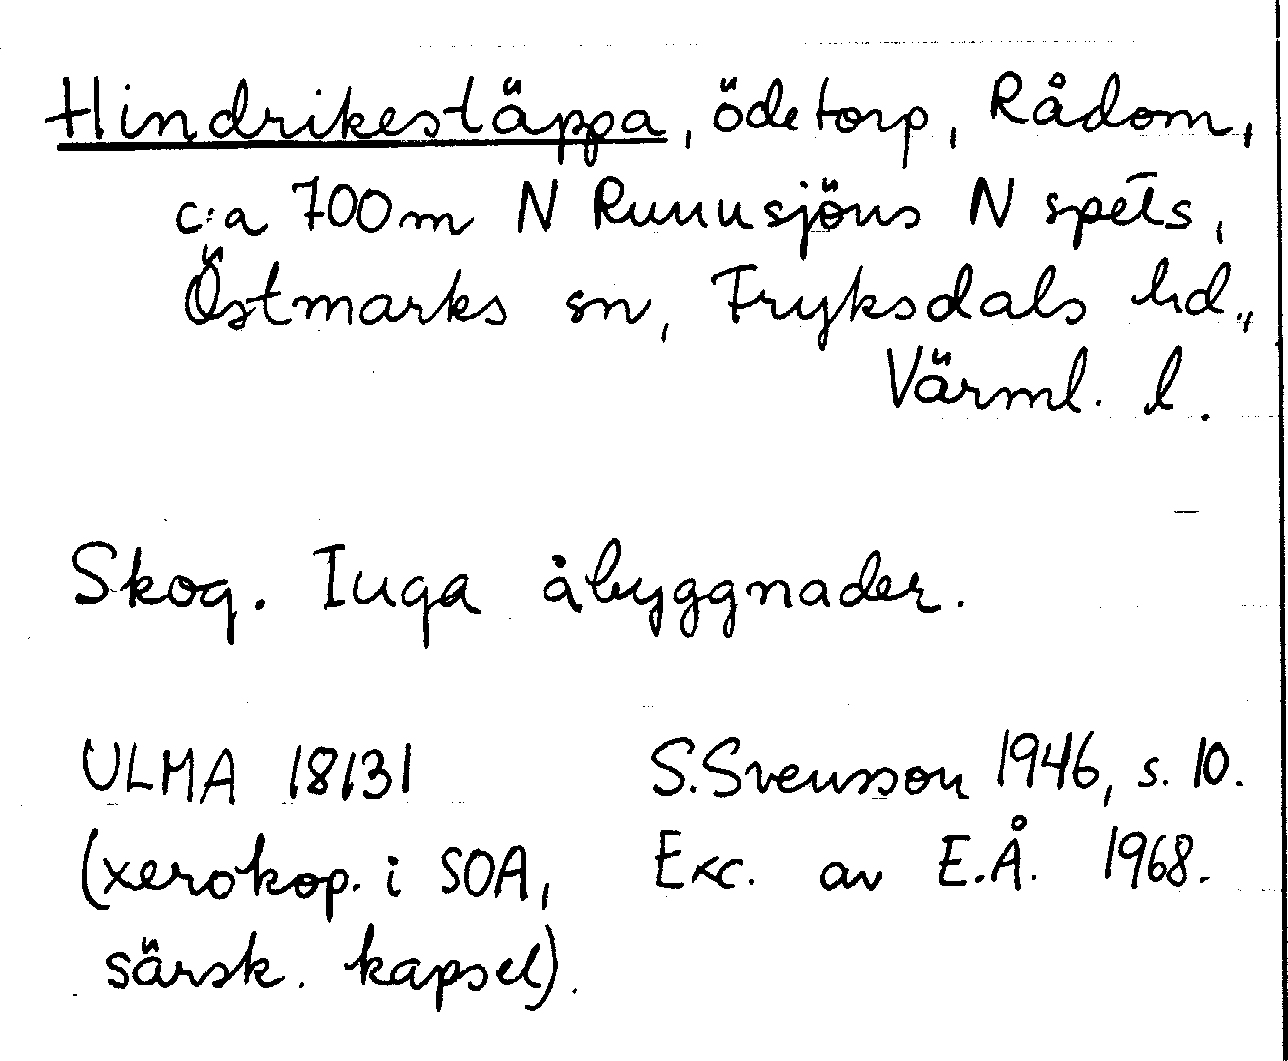 Hindrikestäppa, ödetorp, Rådom,
c:a 700m N Runnsjöns N spets,
Östmarks sn, Fryksdals hd.,
Värml. l.
Skog. Inga åbyggnader.
ULMA 18131 S.Svensson 1946, s. 10.
(xerokop. i SOA, Exc. av E.Å. 1968.
särsk. kapsel).